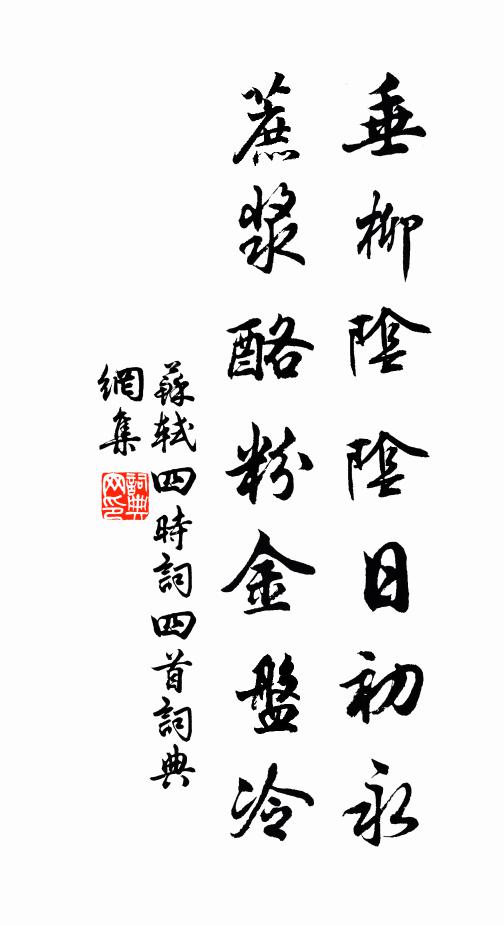 垂柳陰陰日初永
蔗漿酪粉金盤冷
蘇軾四時詞四首詞典
網集
詞典网印